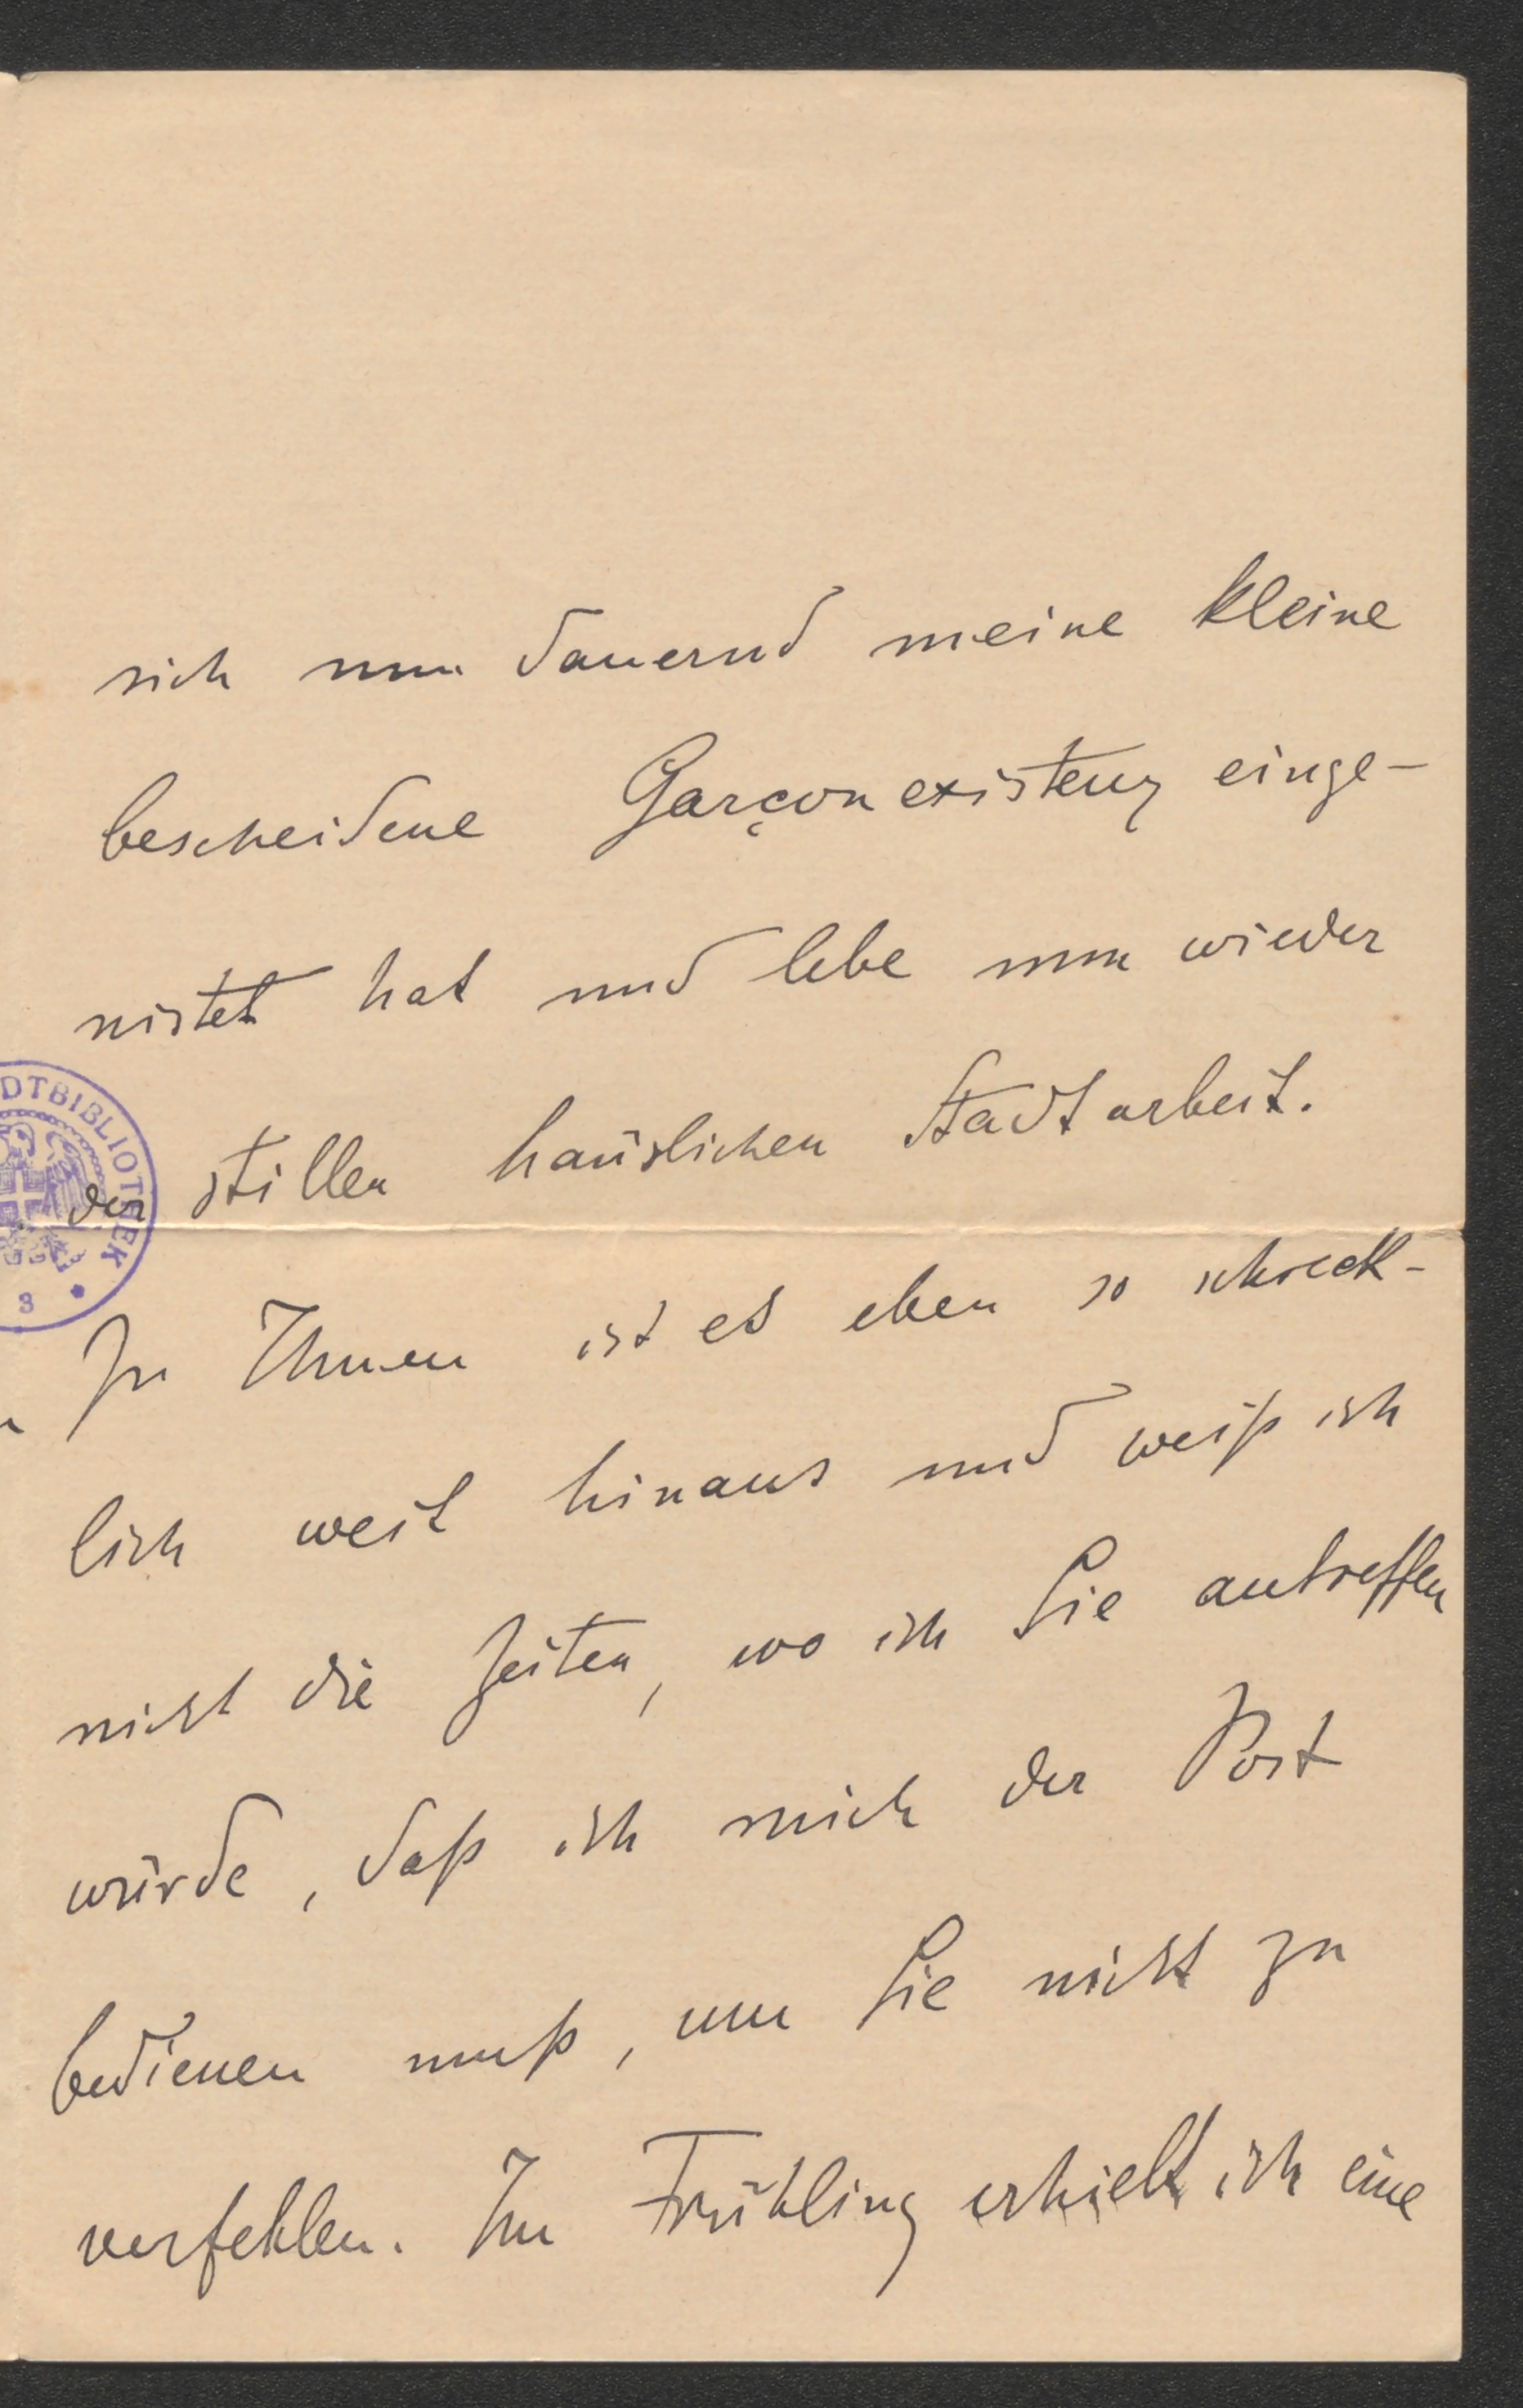 sich nun dauernd meine kleine
bescheidene Garçonexistenz einge-
nistet hat und lebe nun wieder
der stillen häuslichen Stadtarbeit.
Zu Ihnen ist es eben so schreck-
lich weit hinaus und weiß ich
nicht die Zeiten, wo ich Sie antreffen
würde, daß ich mich der Post
bedienen muß, um Sie nicht zu
verfehlen. Im Frühling erhielt ich eine
DTBIBLIOTHEK
3